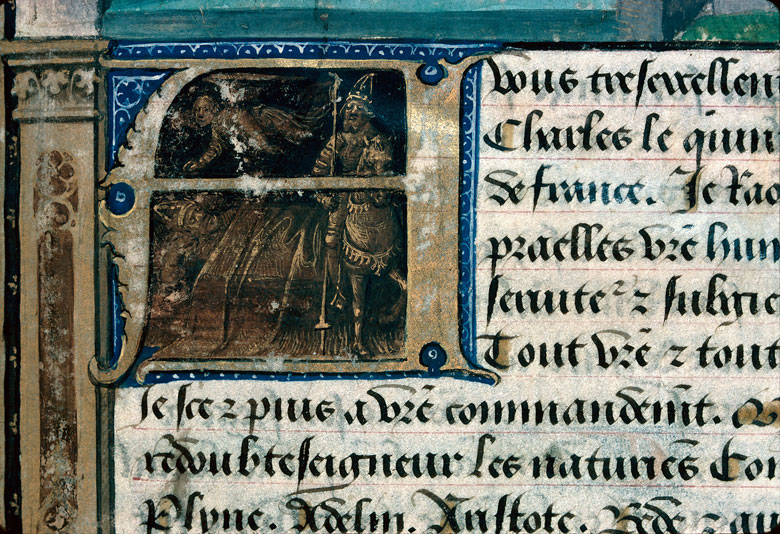 A vous tresexcellen
Charles le quin
de france. Je Rao
praelles vr̃e hum
seruite² ⁊ subgie
Tout vr̃e ⁊ tout
Je sce ⁊ puis a vr̃e commandem̃t.
redoubte seigneur les naturiẽs Con
Plyne. Adelin. Aristote. Bede ⁊ au